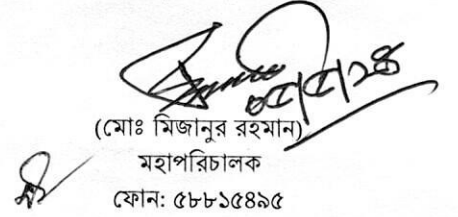 (মোঃ মিজানুর রহমান)
মহাপরিচালক
ফোন: ৫৮৮১৫৪৯৫